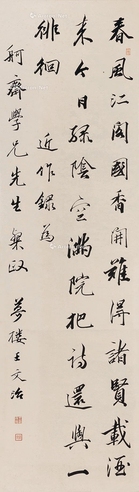 春風江閣國香開難得諸賢載酒
來今日綠陰空滿院把詩還與一
徘徊
近作錄為
舸齋學兄先生粲政
夢樓王文治